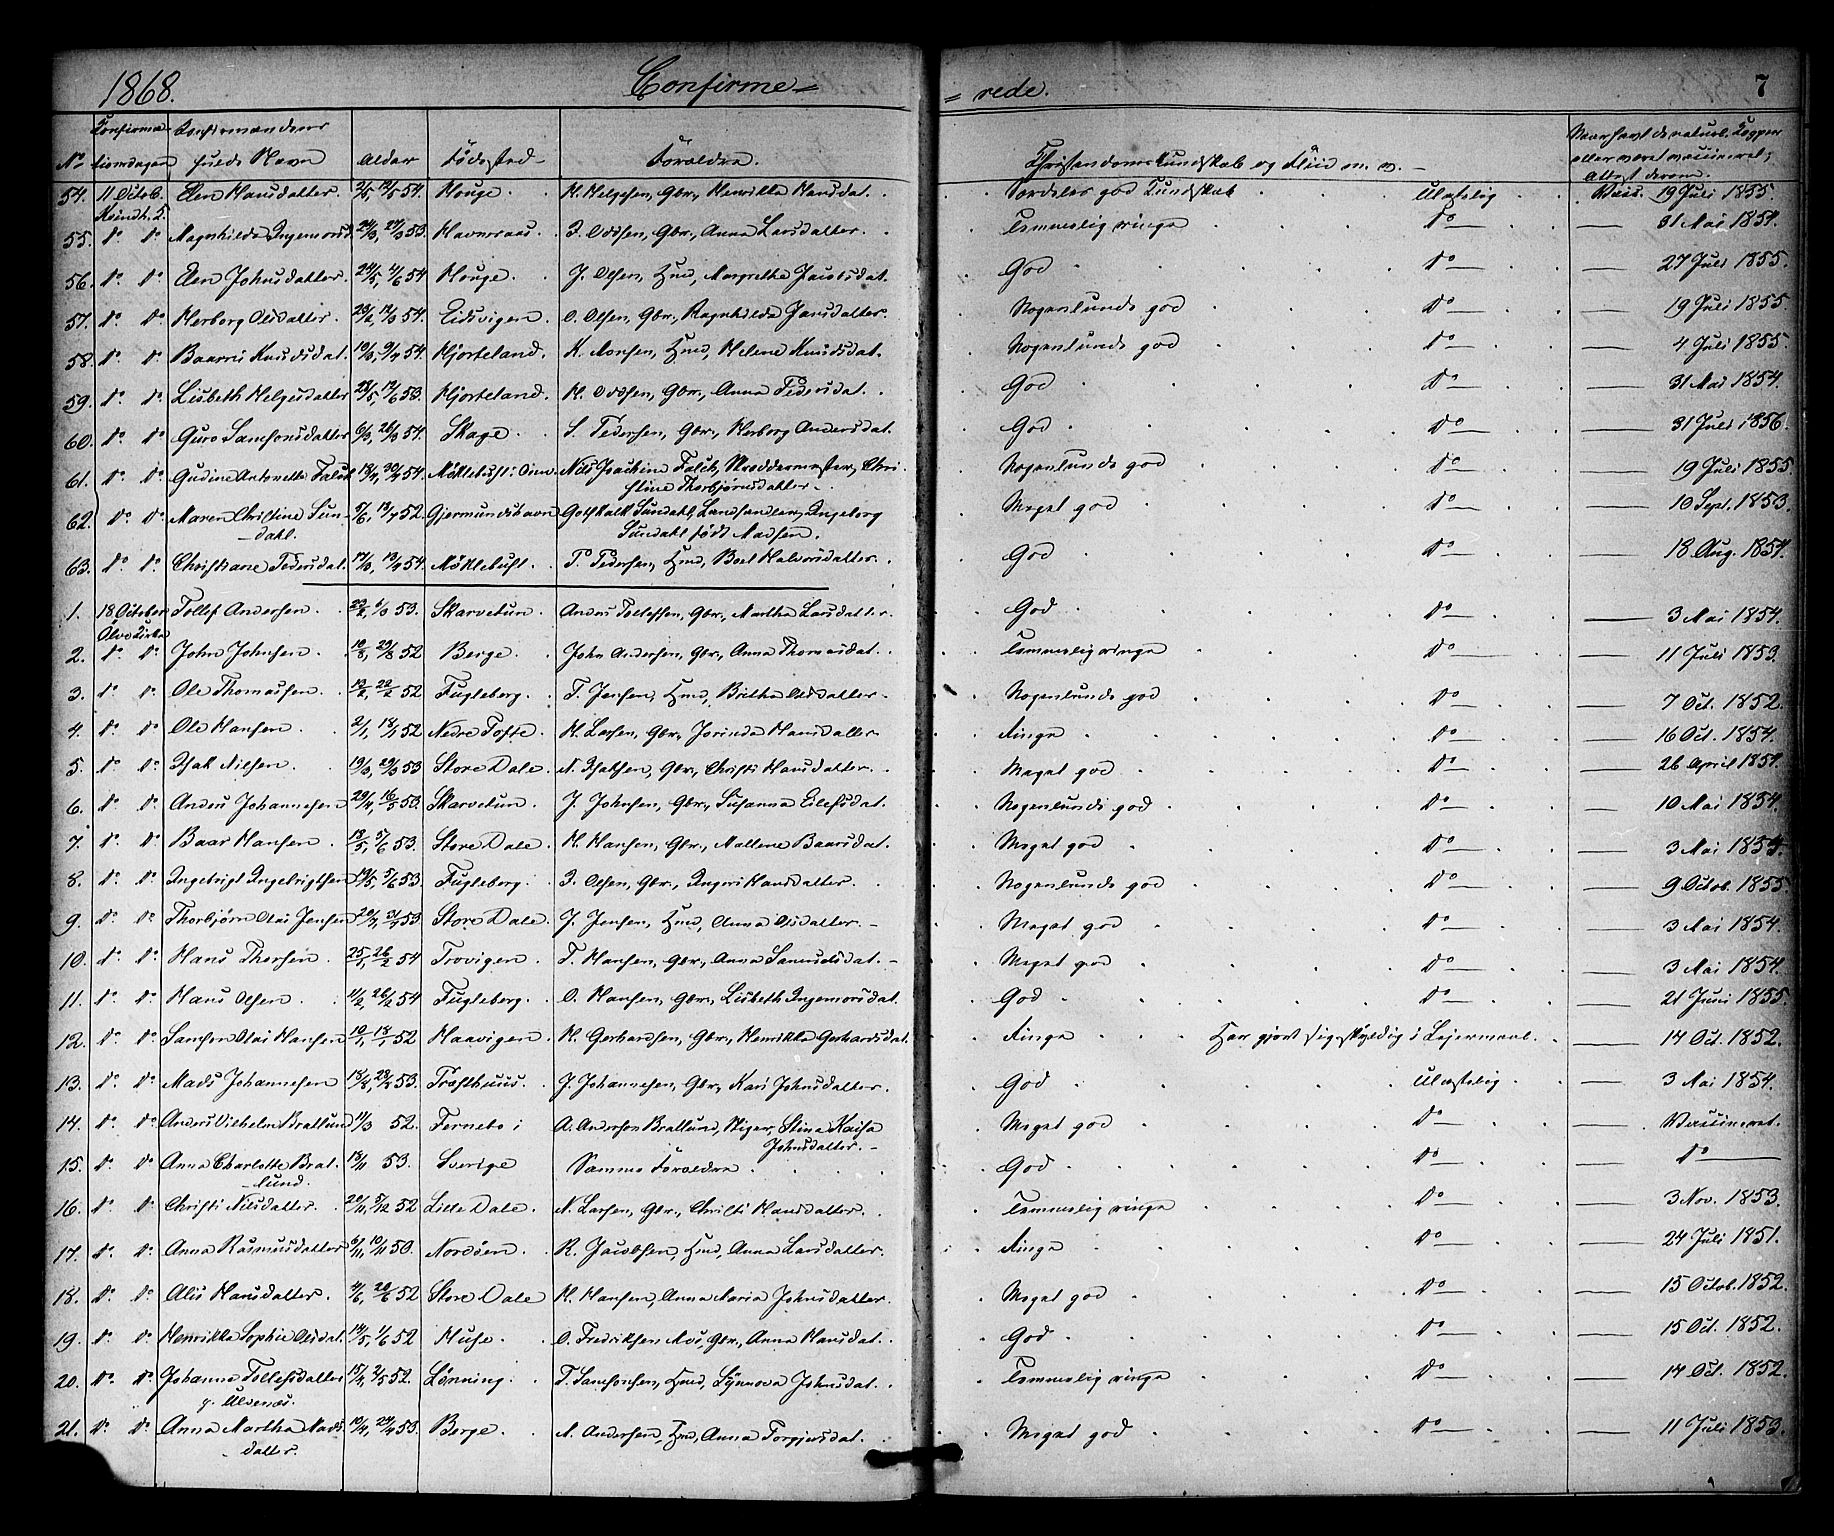 1868. Confirme= = rede. 7
No Confirma- tionsdagen Confirmandens fulde Navn Alder Fødested Forældre. Christendomskundskab og Flid m. v. Naar havt de naturl. Kopper eller været vaccineret; Attest derom.
54. 11 Octob. Kvindh. K. Elen Hansdatter. 54. Houge. H. Helgesen, Gbr., Henrikka Hansdat. Særdeles god Kundskab Ulastelig Vacc. 19 Juli 1855.
55. do do Magnhilde Ingemorsd. 53. Havneraas. I. Oddsen, Gbr., Anna Larsdatter. Temmelig ringe do 31 Mai 1854.
56. do do Elen Johnsdatter 24/5, 4/6 54 Houge. J. Olsen, Hmd, Margrethe Jacobsdat. God do 27 Juli 1855.
57. do do Herborg Olsdatter. 54. Eidsvigen. O. Olsen, Gbr., Ragnhilda Jansdatter. Nogenlunde god do 19 Juli 1855
58. do do Baarni Knudsdat. 54. Hjorteland. K. Monsen, Hmd, Helene Knudsdat. Nogenlunde god do 4 Juli 1855.
59. do do Lisbeth Helgesdatter 53. Hjorteland. H. Oddsen, Gbr., Anna Pedersdat. God do 31 Mai 1854.
60. do do Guro Samsonsdatter 54. Skage. S. Pedersen, Gbr., Herborg Andersdat. God do 31 Juli 1856.
61. do do Gudine Antonette Falch 54. Møklebust i Nils Joachim Falch, Skreddermester, Chri- Nogenlunde god do 19 Juli 1855
stine Thorbjørnsdatter.
62. do do Maren Christine Sun- 52. Gjermundshavn Gotskalk Sundahl, Landhandler, Ingeborg Meget god do 10 Sept. 1853.
dahl. Sundahl født Madsen.
63. do do Christiane Pedersdat. 54. Møklebust. P. Pedersen, Hmd, Boel Halvorsdatter. God do 18 Aug. 1854.
1. 18 October Ølve Kirke Tollef Andersen. 53. Skarvetun. Anders Tollefsen, Gbr., Martha Larsdatter. God do 3 Mai 1854.
2. do do John Johnsen. 52 Berge. John Andersen, Gbr., Anna Thomasdat. Temmelig ringe do 11 Juli 1853.
3. do do Ole Thomassen. 52 Fugleberg. T. Jensen, Hmd, Britha Olsdatter. Nogenlunde god do 7 Oct. 1852.
4. do do Ole Hansen. 2/1, 18/1 52 Nedre Tofte. H. Larsen, Gbr., Jorinda Hansdatter Ringe do 16 Oct. 1854.
5. do do Isak Nilsen. 53 Store Dale. N. Isaksen, Gbr., Christi Hansdatter. Meget god do 26 April 1854.
6. do do Anders Johannesen 53. Skarvetun. J. Johnsen, Gbr., Susanna Eilefsdat. Nogenlunde god do 10 Mai 1854.
7. do do Baar Hansen. 53. Store Dale. H. Hansen, Gbr., Mallene Baarsdat. Meget god do 3 Mai 1854.
8. do do Ingebrigt Ingebrigtsen 53. Fugleberg. I. Olsen, Gbr., Ingeri Hansdatter. Nogenlunde god do 9 Octob. 1855
9. do do Thorbjørn Olai Jensen 53 Store Dale. J. Jensen, Hmd, Anna Olsdatter. Meget god do 3 Mai 1854.
10. do do Hans Thorsen. 25/1, 26/2 54 Trovigen. T. Hansen, Gbr., Anna Samuelsdat. Meget god do 3 Mai 1854.
11. do do Hans Olsen. 54 Fugleberg. O. Hansen, Gbr., Lisbeth Ingemorsdat. God do 21 Juni 1855.
12. do do Samson Olai Hansen 52 Haavigen. H. Gerhardsen, Gbr., Henrikka Gerhardsdat. Ringe Har gjort sig skyldig i Leiermaal. 14 Oct. 1852.
13. do do Mads Johannesen 53. Træsthuus. J. Johannesen, Gbr., Kari Johnsdatter. God Ulastelig 3 Mai 1854.
14. do do Anders Vilhelm Bratlund 11/3 52. Fernebo i A. Andersson Bratlund, Stiger, Stina Kaisa Meget god do Vaccineret.
Johnsdatter.
15. do do Anna Charlotte Brat- 53. Sverige Samme Forældre God do do
lund.
16. do do Christi Nilsdatter. 20/11, 5/12 52 Lille Dale. N. Larsen, Gbr., Christi Hansdatter. Temmelig ringe do 3 Nov. 1853.
17. do do Anna Rasmusdatter 50. Nordøen. R. Jacobsen, Hmd, Anna Larsdatter. Ringe do 24 Juli 1851.
18. do do Alis Hansdatter. 4/6, 20/6 52 Store Dale H. Hansen, Anna Maria Johnsdatter. Meget god do 15 Octob. 1852.
19. do do Henrikka Sophie Olsdat. 52 Huse. O. Fredriksen Moe, Gbr., Anna Hansdat. God do 15 Oct. 1852.
20. do do Johanna Tollefsdatter 52. Lønning. T. Samsonsen, Hmd, Synnova Johnsdat. Temmelig ringe do 14 Oct. 1852.
p. Ulvenæs.
21. do do Anna Martha Mads- 53. Berge. M. Andersen, Hmd, Anna Torgjersdat. Meget god do 11 Juli 1853.
datter.